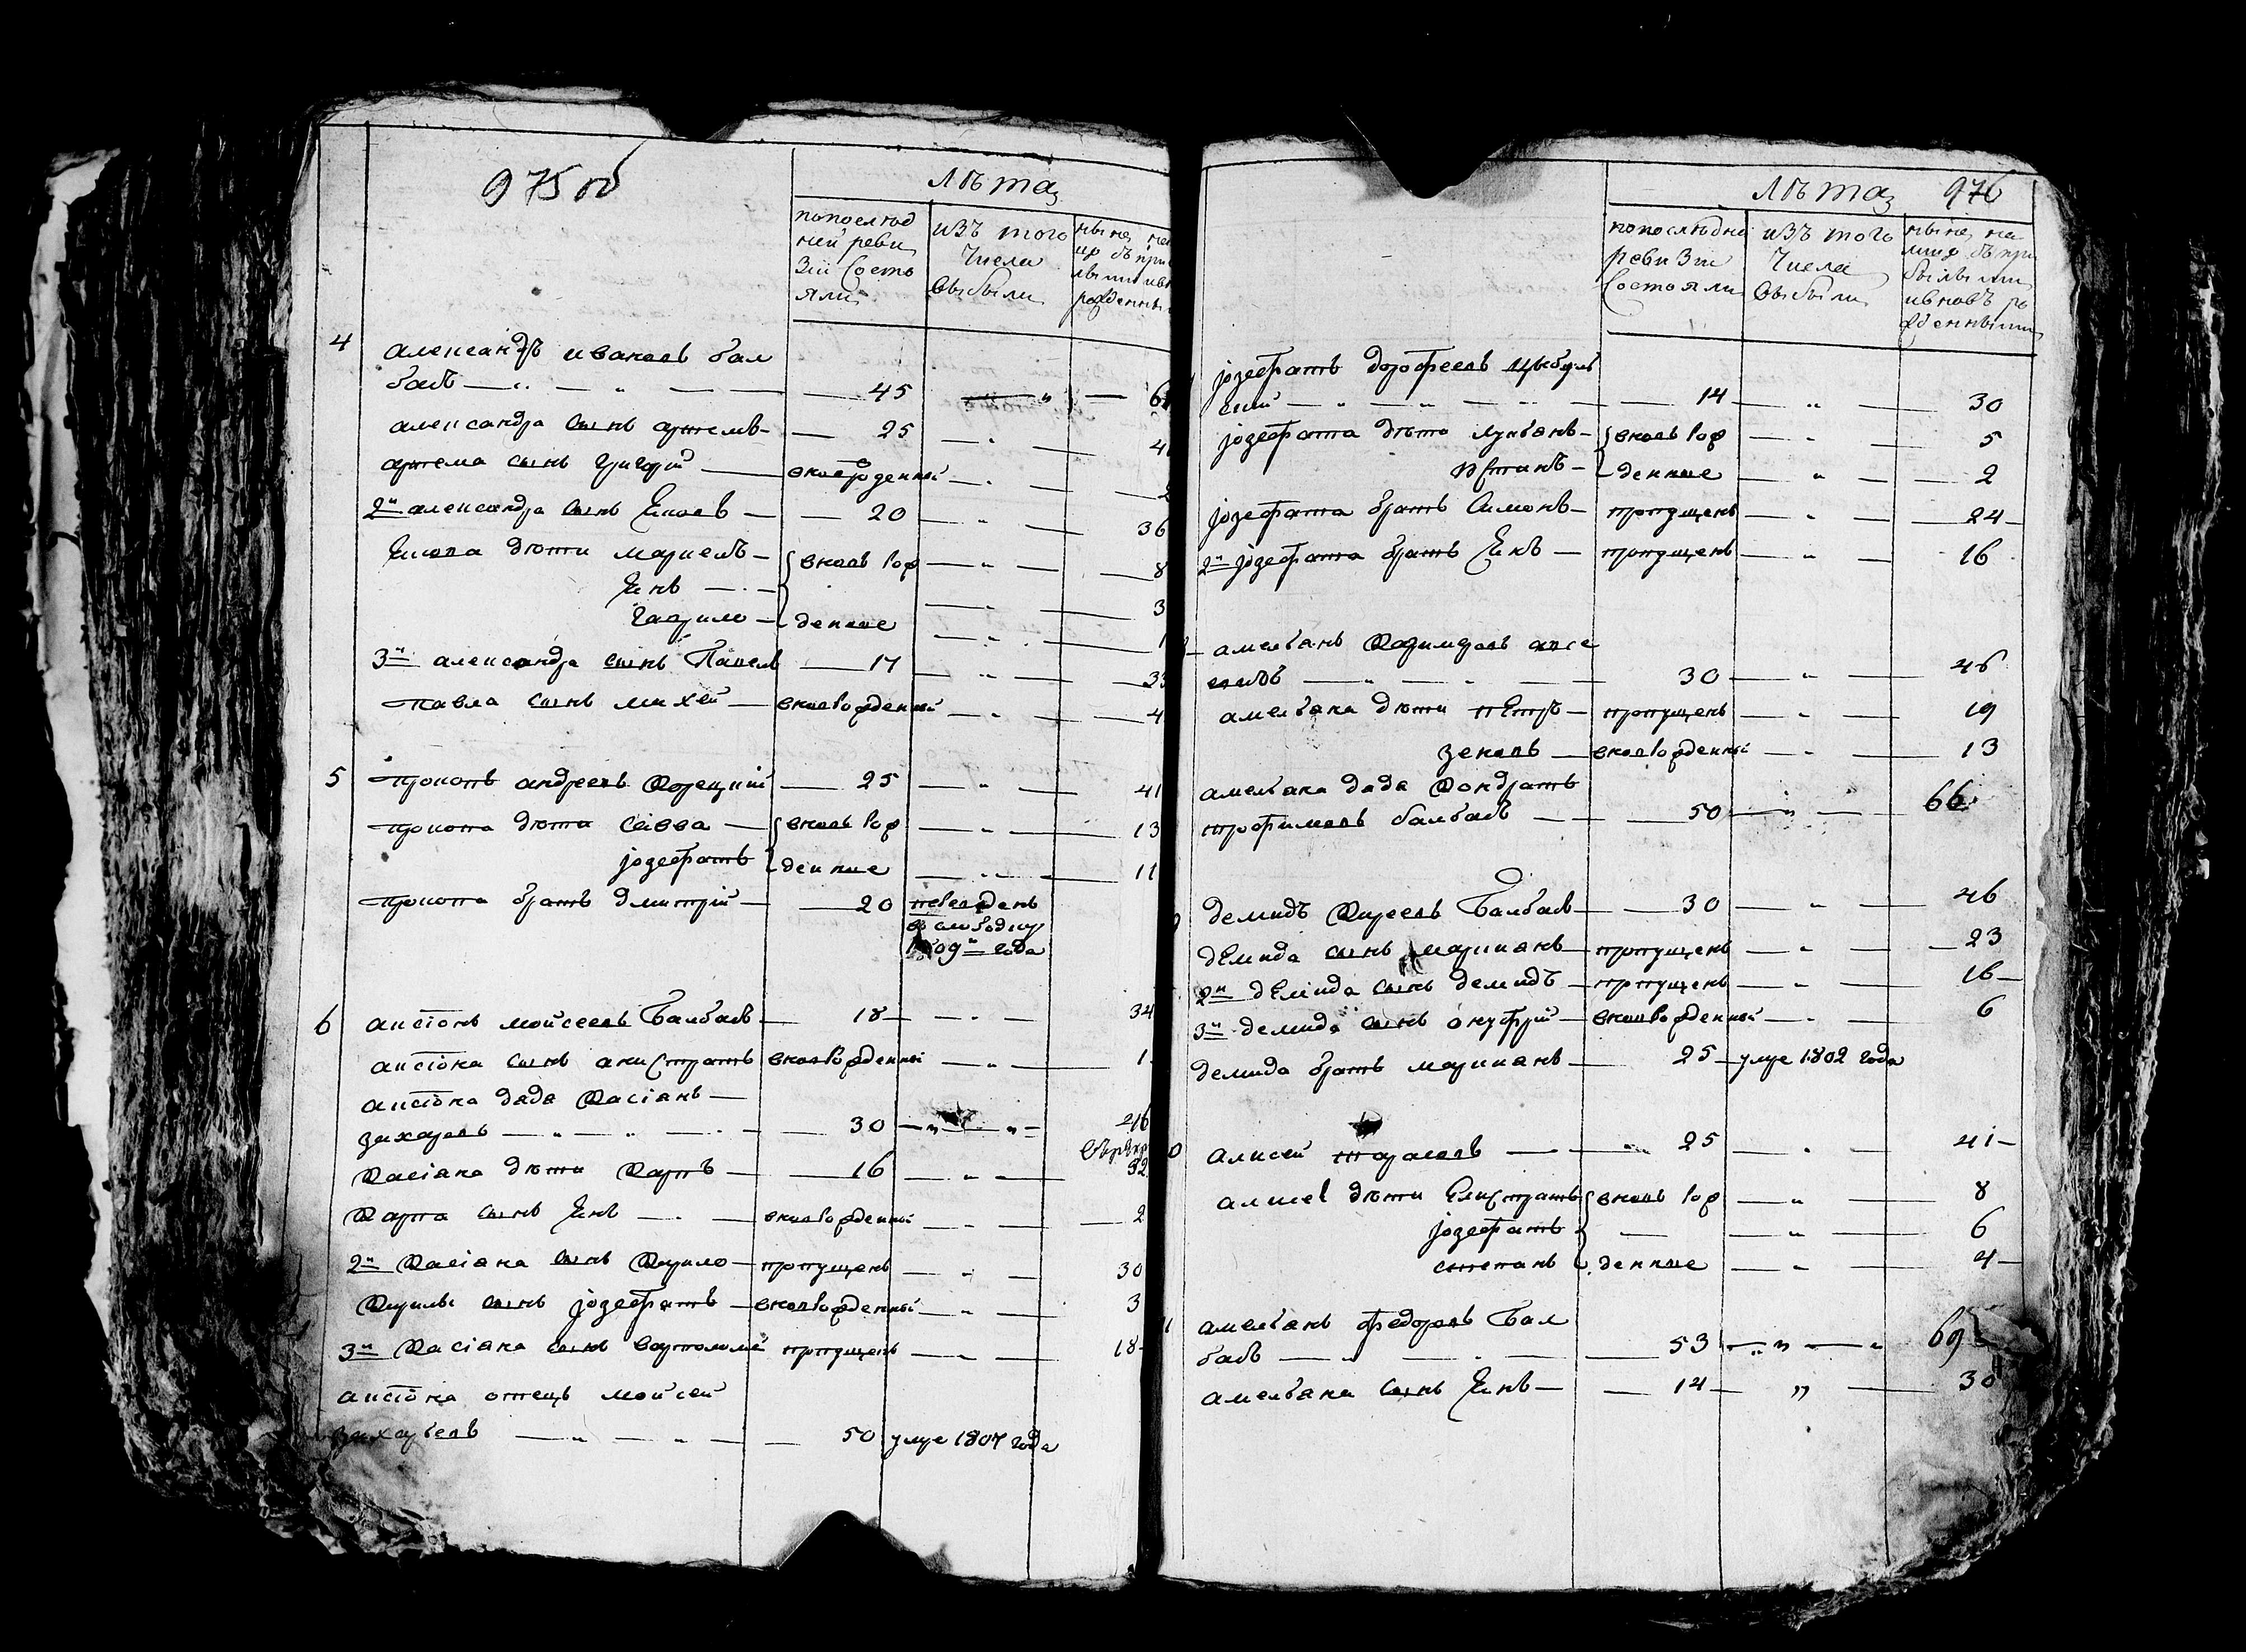 975 об
Лѣта
попослѣд
ней реви
зіи Состо
яли
изъ того
числа
выбыли
4
александръ ивановъ бал
бабъ 45
александра сынъ артемъ 25
артема сынъ григорій вновьрожденный
2й александра сынъ Яковъ 20 36
Якова дѣти маркелъ вновь рож 8
Янъ 3
гаврило денные 1
3й александра сынъ Павелъ 17 33
павла сынъ михей вновьрожденный 4
5 прокопъ андреевъ Корецкий 25 41
прокопа дѣти савва вновь рож 13
јозефатъ денные 11
прокопа братъ дмитрій 20 переведенъ
в слободку
1809го года
6 антонъ мойсеевъ Балбабъ 18 34
антона сынъ анистратъ вновьрожденный 1
антона дядя Касіанъ
захаровъ 30 46
Касіана дѣти Карпъ 16 32
Карпа сынъ Янъ вновьрожденный 2
2й Касіана сынъ Кирило пропущенъ 30
Кирилы сынъ јозефатъ вновьрожденный 3
3й Касіана сынъ вартоломей пропущенъ 18
антона отецъ мойсей
50 умре 1807 года
Лѣта 976
попослѣдней
ревизіи
Состояли
изъ того
числа
выбыли
ныне на
лицо съ при
былыми
ивновь ро
жденными
јозефатъ дорофеевъ цыбуль
скій 14 30
јозефата дѣти лукьянъ вновь рож 5
устинъ денные 2
јозефата братъ Симонъ пропущенъ 24
2й јозефата братъ Янъ пропущенъ 16
амельянъ
30 46
амельяна дѣти пЕтръ пропущенъ 19
зеновъ вновьрожденный 13
амельяна дядя Кондратъ
трофимовъ балбабъ 50 66
демидъ Киреевъ Балбабъ 30 46
дЕмида сынъ маркианъ пропущенъ 23
2й дЕмида сынъ демидъ пропущенъ 16
3й демида сынъ онуфрій вновьрожденный 6
демида братъ маркианъ 25 умре 1802 года
алисей тарасовъ 25 41
алисея дѣти Елистратъ вновь рож 8
јозефатъ 6
степанъ денные 4
амельянъ федоровъ Бал
бабъ 53 69
амельяна сынъ Янъ 14 30